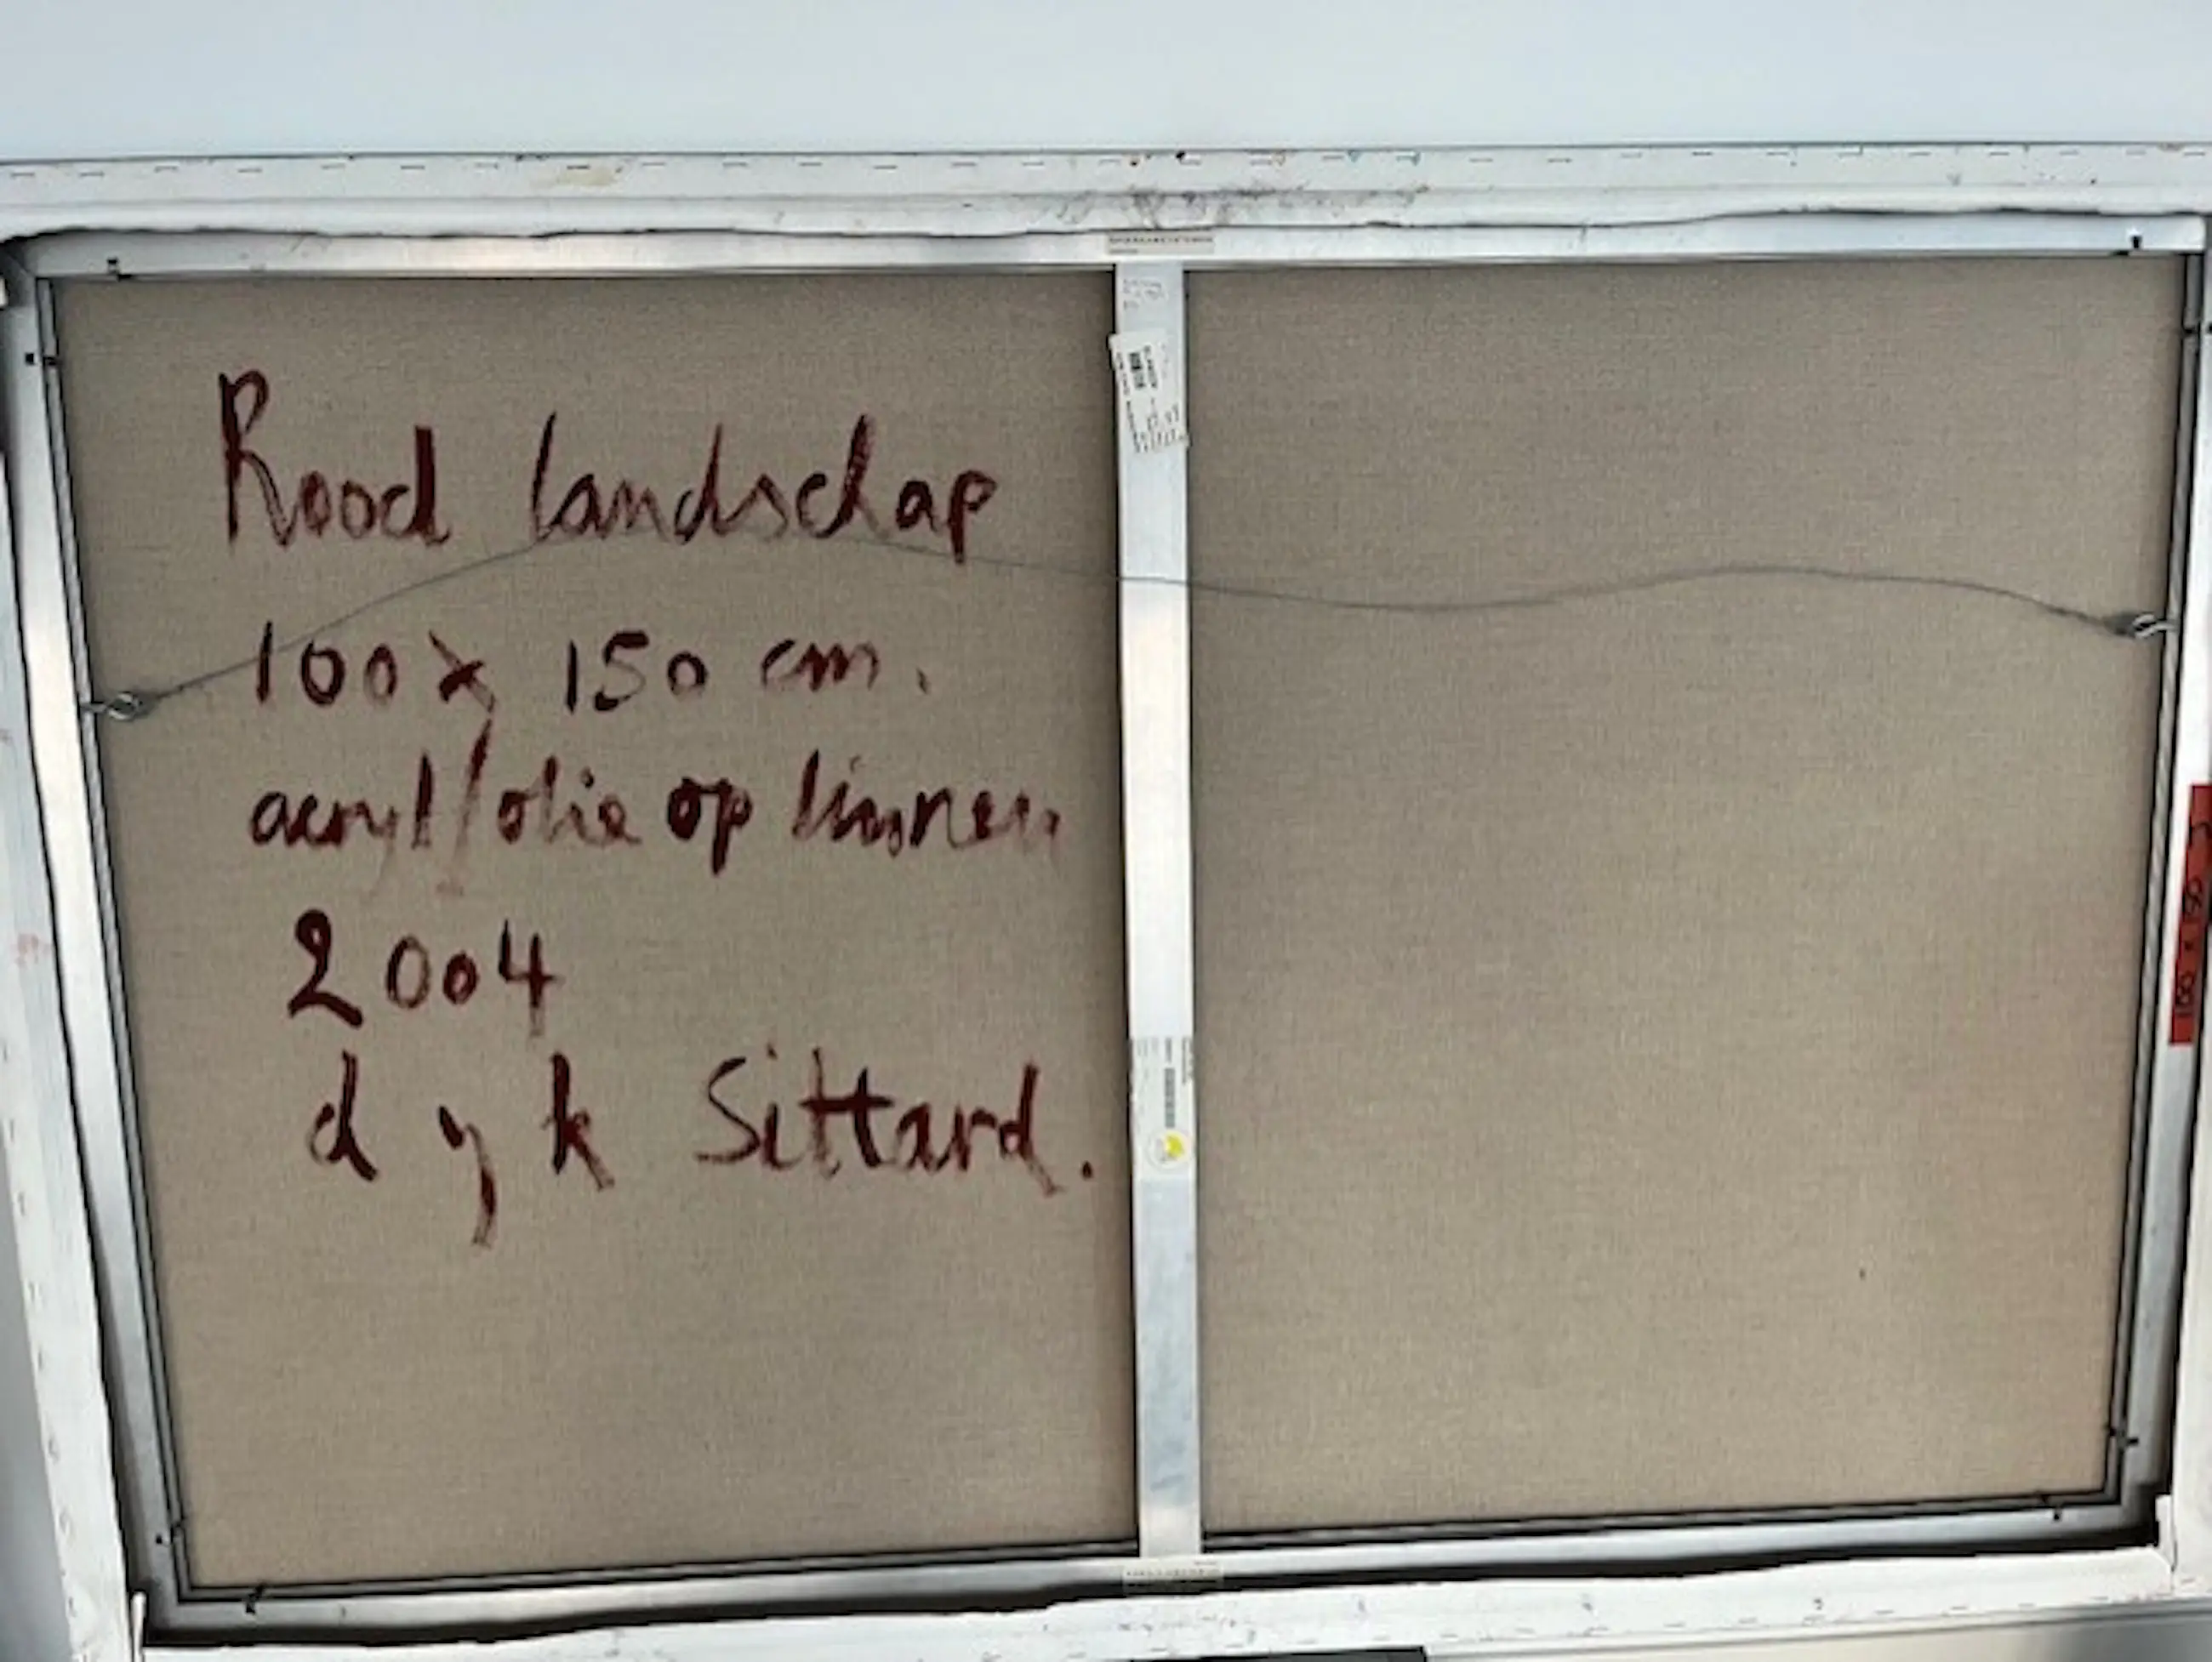 Rood landschap
100 x 150 cm.
acryl/olie op linnen
2004
d y k Sittard.
100 x